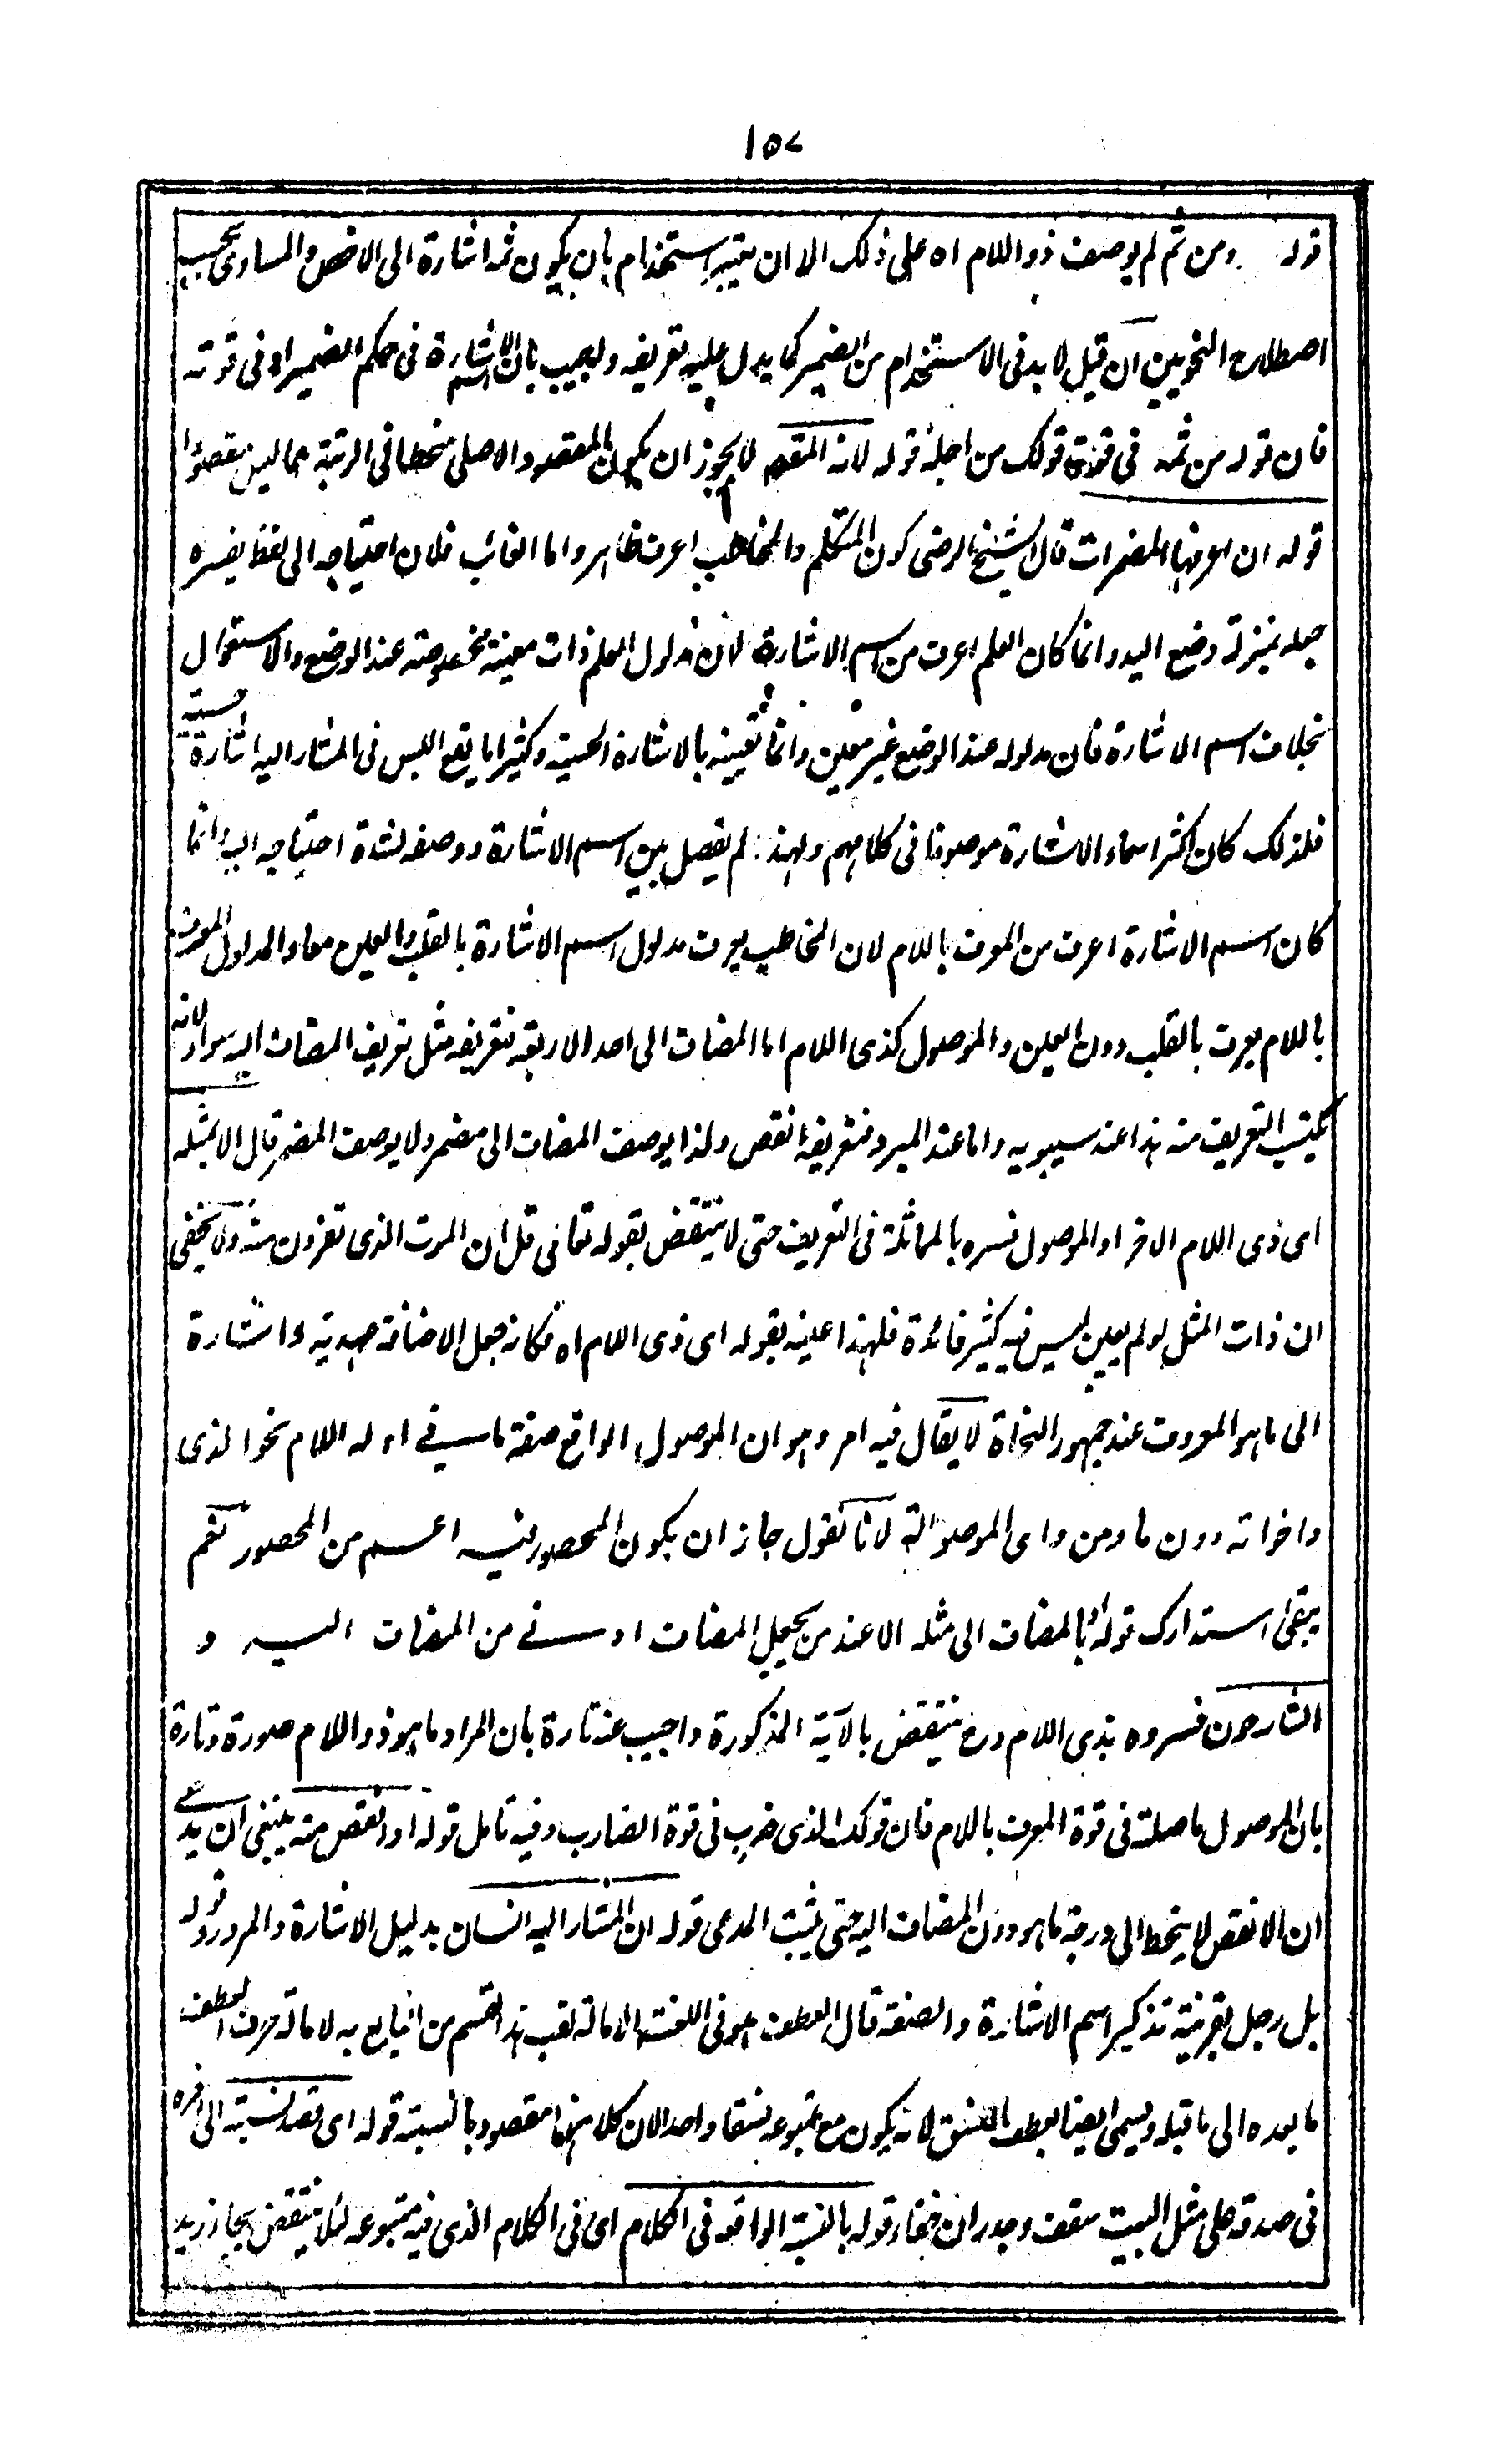 ١٥٧
قوله ومن ثم لم يوصف ذو اللام اه على ذلك الا ان يعتبر استخدام بان يكون ثمه اشارة الى الاخص والمساوى بحسب
اصطلاح النحويين ان قيل لا بد فى الاستخدام من الضمير كما يدل عليه تعريفه واجيب بان اسم الاشارة فى حكم الضمير او فى قوته
فان قوله من ثمه فى قوة قولك من اجله قوله لانه المقصود لا يجوز ان يكون المقصود الاصلى منحطا فى الرتبة مما ليس مقصودا
قوله ان اعرفها المضمرات قال الشيخ الرضى كون المتكلم والمخاطب اعرف ظاهر واما الغائب فلان احتياجه الى لفظ يفسره
جعله بمنزلة وضع اليد وانما كان العلم اعرف من اسم الاشارة لان مدلول العلم ذات معينة مخصوصة عند الوضع والاستعمال
بخلاف اسم الاشارة فان مدلوله عند الوضع غير معين وانما تعيينه بالاشارة الحسية وكثيرا ما يقع اللبس فى المشار اليه اشارة حسية
فلذلك كان اكثر اسماء الاشارة موصوفا فى كلامهم ولهذا لم يفصل بين اسم الاشارة ووصفه لشدة احتياجه اليه وانما
كان اسم الاشارة اعرف من المعرف باللام لان المخاطب يعرف مدلول اسم الاشارة بالقلب والعين معا والمدلول المعرف
باللام يعرف بالقلب دون العين والموصول كذى اللام اما المضاف الى احد الاربعة فتعريفه مثل تعريف المضاف اليه سواء لانه
يكتسب التعريف منه هذا عند سيبويه واما عند المبرد فتعريفه انقص ولذا يوصف المضاف الى مضمر ولا يوصف المضمر قال الا بمثله
اى ذى اللام الاخر او الموصول فسره بالمماثلة فى التعريف حتى لا ينتقض بقوله تعالى قل ان الموت الذى تفرون منه ولا يخفى
ان ذات المثل لو لم يعين ليس فيه كثير فائدة فلهذا عينه بقوله اى ذى اللام اه فكانه جعل الاضافة عهدية واشارة
الى ما هو المعروف عند جمهور النحاة لا يقال فيه امر وهو ان الموصول الواقع صفة ما فى اوله اللام نحو الذى
واخواته دون ما ومن واى الموصولة لانا نقول جاز ان يكون المحصور فيه اعم من المحصور نعم
يبقى استدراك قوله او بالمضاف الى مثله الا عند من يجعل المضاف ادنى من المضاف اليه و
الشارحون فسروه بذى اللام وح ينتقض بالآية المذكورة واجيب عنه تارة بان المراد ما هو ذو اللام صورة وتارة
بان الموصول ما صلته فى قوة المعرف باللام فان قولك الذى ضرب فى قوة الضارب وفيه تامل قوله او انقص منه ينبغى ان يدعى
ان الانقص لا ينحط الى درجة ما هو دون المضاف اليه حتى يثبت المدعى قوله ان المشار اليه انسان بدليل الاشارة والمرور قوله
بل رجل بقرينة تذكير اسم الاشارة والصفة قال العطف هو فى اللغة الامالة لقب هذا القسم من التابع به لامالة حرف العطف
ما بعده الى ما قبله ويسمى ايضا بعطف النسق لانه يكون مع متبوعه نسقا واحدا لان كلا منهما مقصود بالنسبة قوله اى قصد نسبته الى اخره
فى صدقه على مثل البيت سقف وجدران خفاء قوله بالنسبة الواقعة فى الكلام اى فى الكلام الذى فيه متبوعه لئلا ينتقض بجاء زيد